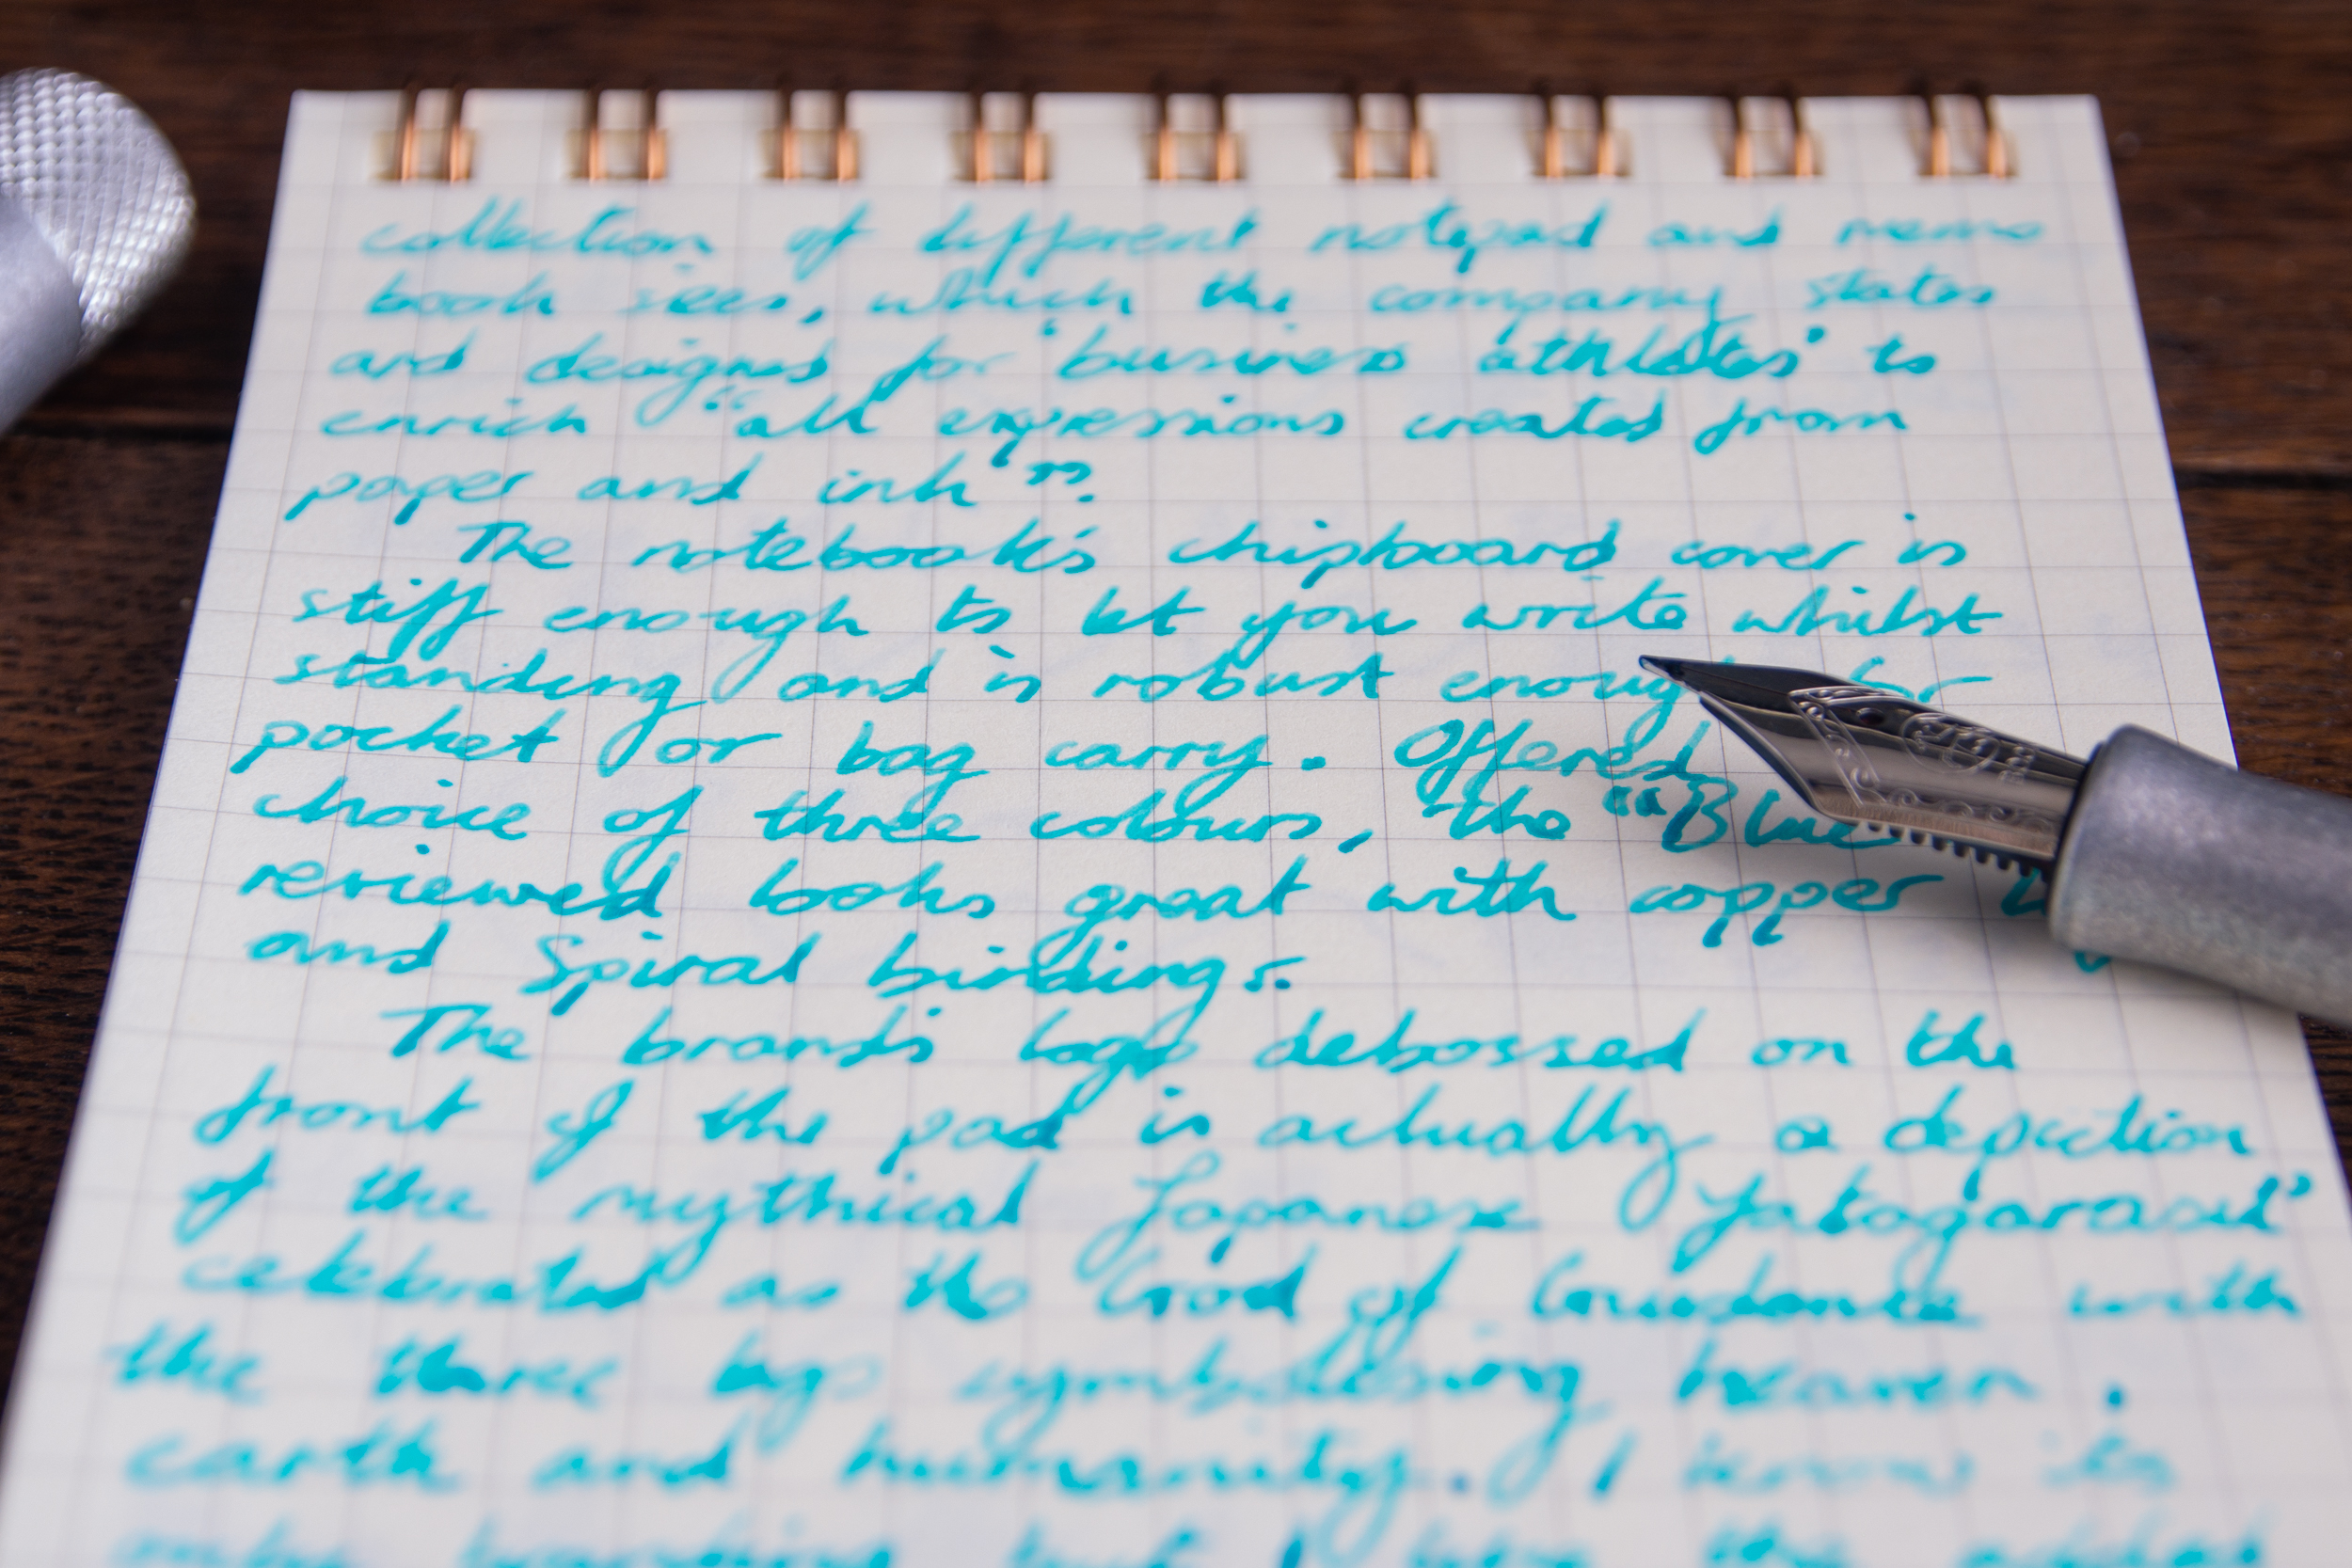 collection of different notepad and memo
book sizes, which the company states
and designed for 'business athletes' to
enrich "all expressions created from
paper and ink".
The notebook's chipboard cover is
stiff enough to let you write whilst
standing and is robust enough for
pocket or bag carry. Offered
choice of three colours, the "Blue
reviewed looks great with copper
and Spiral bindings.
The brand's logo debossed on the
front of the pad is actually a depiction
of the mythical Japanese 'Yatagarasu'
celebrated as the God of Guidance with
the three legs symbolising heaven,
earth and humanity. I know its
only branding but I like the added